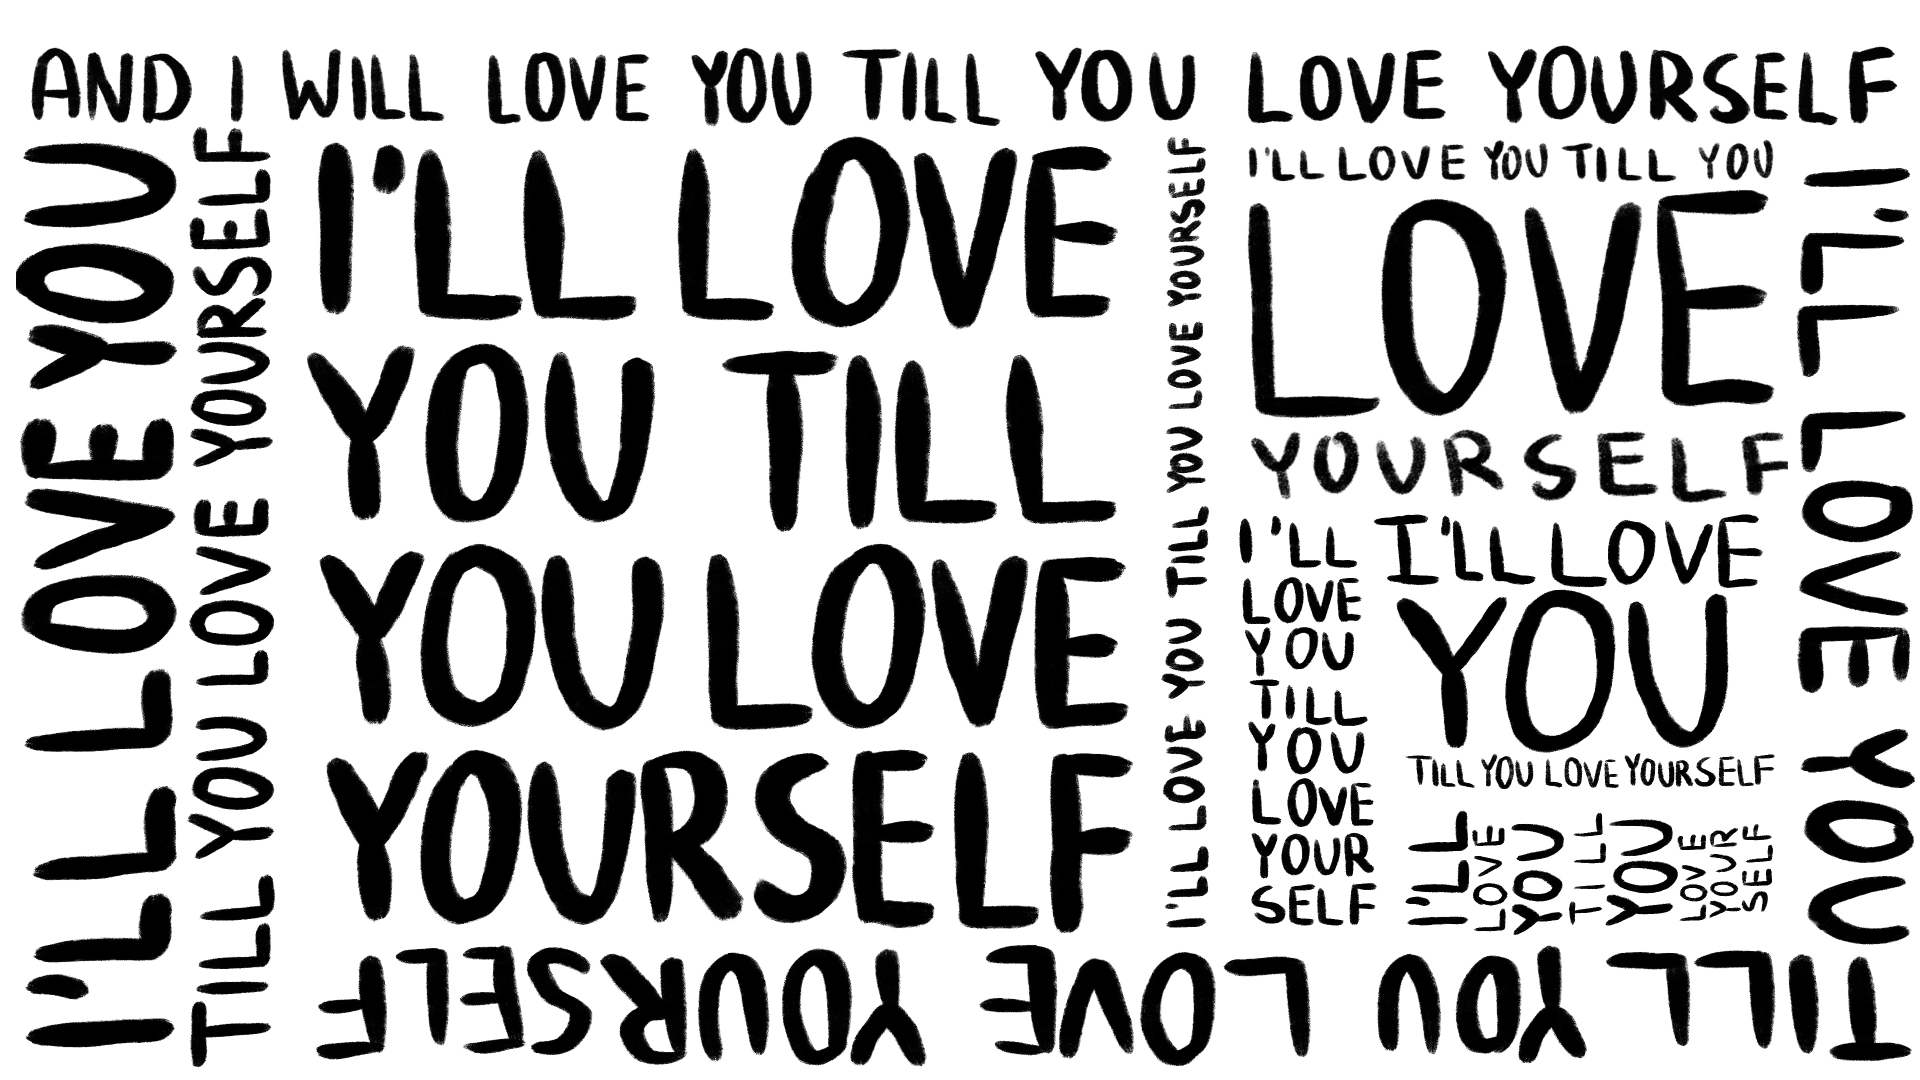 AND I WILL LOVE YOU TILL YOU LOVE YOURSELF
I'LL LOVE YOU
TILL YOU LOVE YOURSELF
I'LL LOVE
YOU TILL
YOU LOVE
YOURSELF
I'LL LOVE YOU TILL YOU LOVE YOURSELF
I'LL LOVE YOU TILL YOU
LOVE
YOURSELF
I'LL
LOVE
YOU
TILL
YOU
LOVE
YOUR
SELF
I'LL LOVE
YOU
TILL YOU LOVE YOURSELF
I'LL
LOVE
YOU
TILL
YOU
LOVE
YOUR
SELF
I'LL LOVE YOU
TILL YOU LOVE YOURSELF